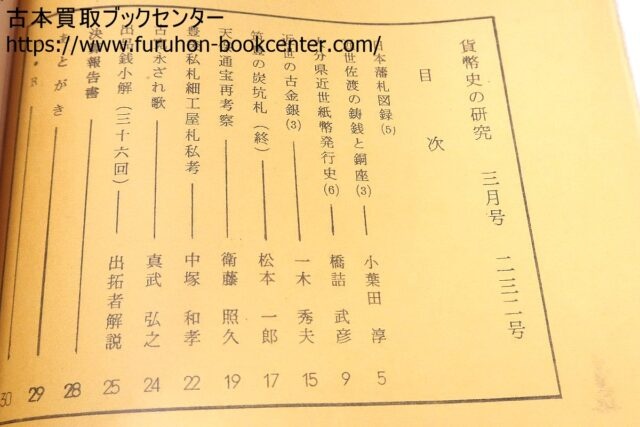 古本買取ブックセンター
https://www.furuhon-bookcenter.com/
貨幣史の研究 三月号 二三二号
目次
日本藩札図録(5)
世佐渡の鋳銭と銅座(3) 小葉田 淳 5
分県近世紙幣発行史(6) 橋詰 武彦 9
近世の古金銀(3) 一木 秀夫 15
筑豊の炭坑札(終) 松本 一郎 17
天保通宝再考察 衛藤 照久 19
豊後私札細工屋札私考 中塚 和孝 22
古銭永ざれ歌 真武 弘之 24
出品銭小解(三十六回) 出拓者解説 25
決算報告書 28
あとがき 29
R 30